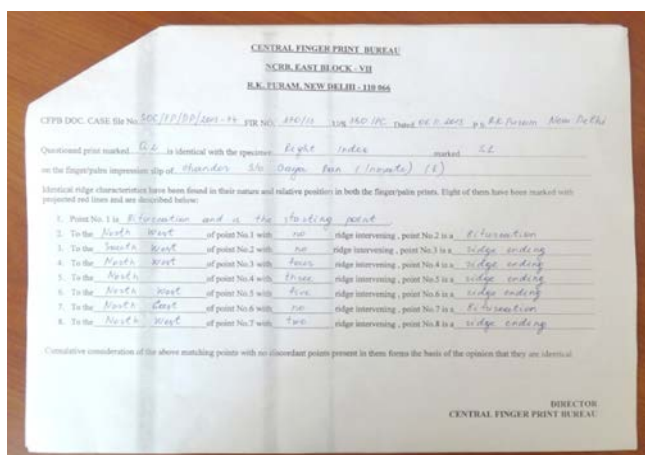 CENTRAL FINGER PRINT BUREAU
NCRB, EAST BLOCK - VII
R.K. PURAM, NEW DELHI - 110 066
CFPB DOC. CASE file No. FIR NO. U/S IPC Dated P.S. R.K. Puram New Delhi
Questioned print marked is identical with the specimen Right index marked
on the finger/palm impression slip of Chander S/o
Identical ridge characteristics have been found in their nature and relative position in both the finger/palm prints. Eight of them have been marked with
projected red lines and are described below:
1. Point No. 1 is Bifurcation and is the starting point
2. To the North West of point No.1 with no ridge intervening , point No.2 is a Bifurcation
3. To the South West of point No.2 with no ridge intervening , point No.3 is a ridge ending
4. To the North West of point No.3 with four ridge intervening , point No.4 is a ridge ending
5. To the North of point No.4 with three ridge intervening , point No.5 is a ridge ending
6. To the North West of point No.5 with five ridge intervening , point No.6 is a ridge ending
7. To the North East of point No.6 with no ridge intervening , point No.7 is a Bifurcation
8. To the North West of point No.7 with two ridge intervening , point No.8 is a ridge ending
Cumulative consideration of the above matching points with no discordant points present in them forms the basis of the opinion that they are identical
DIRECTOR
CENTRAL FINGER PRINT BUREAU